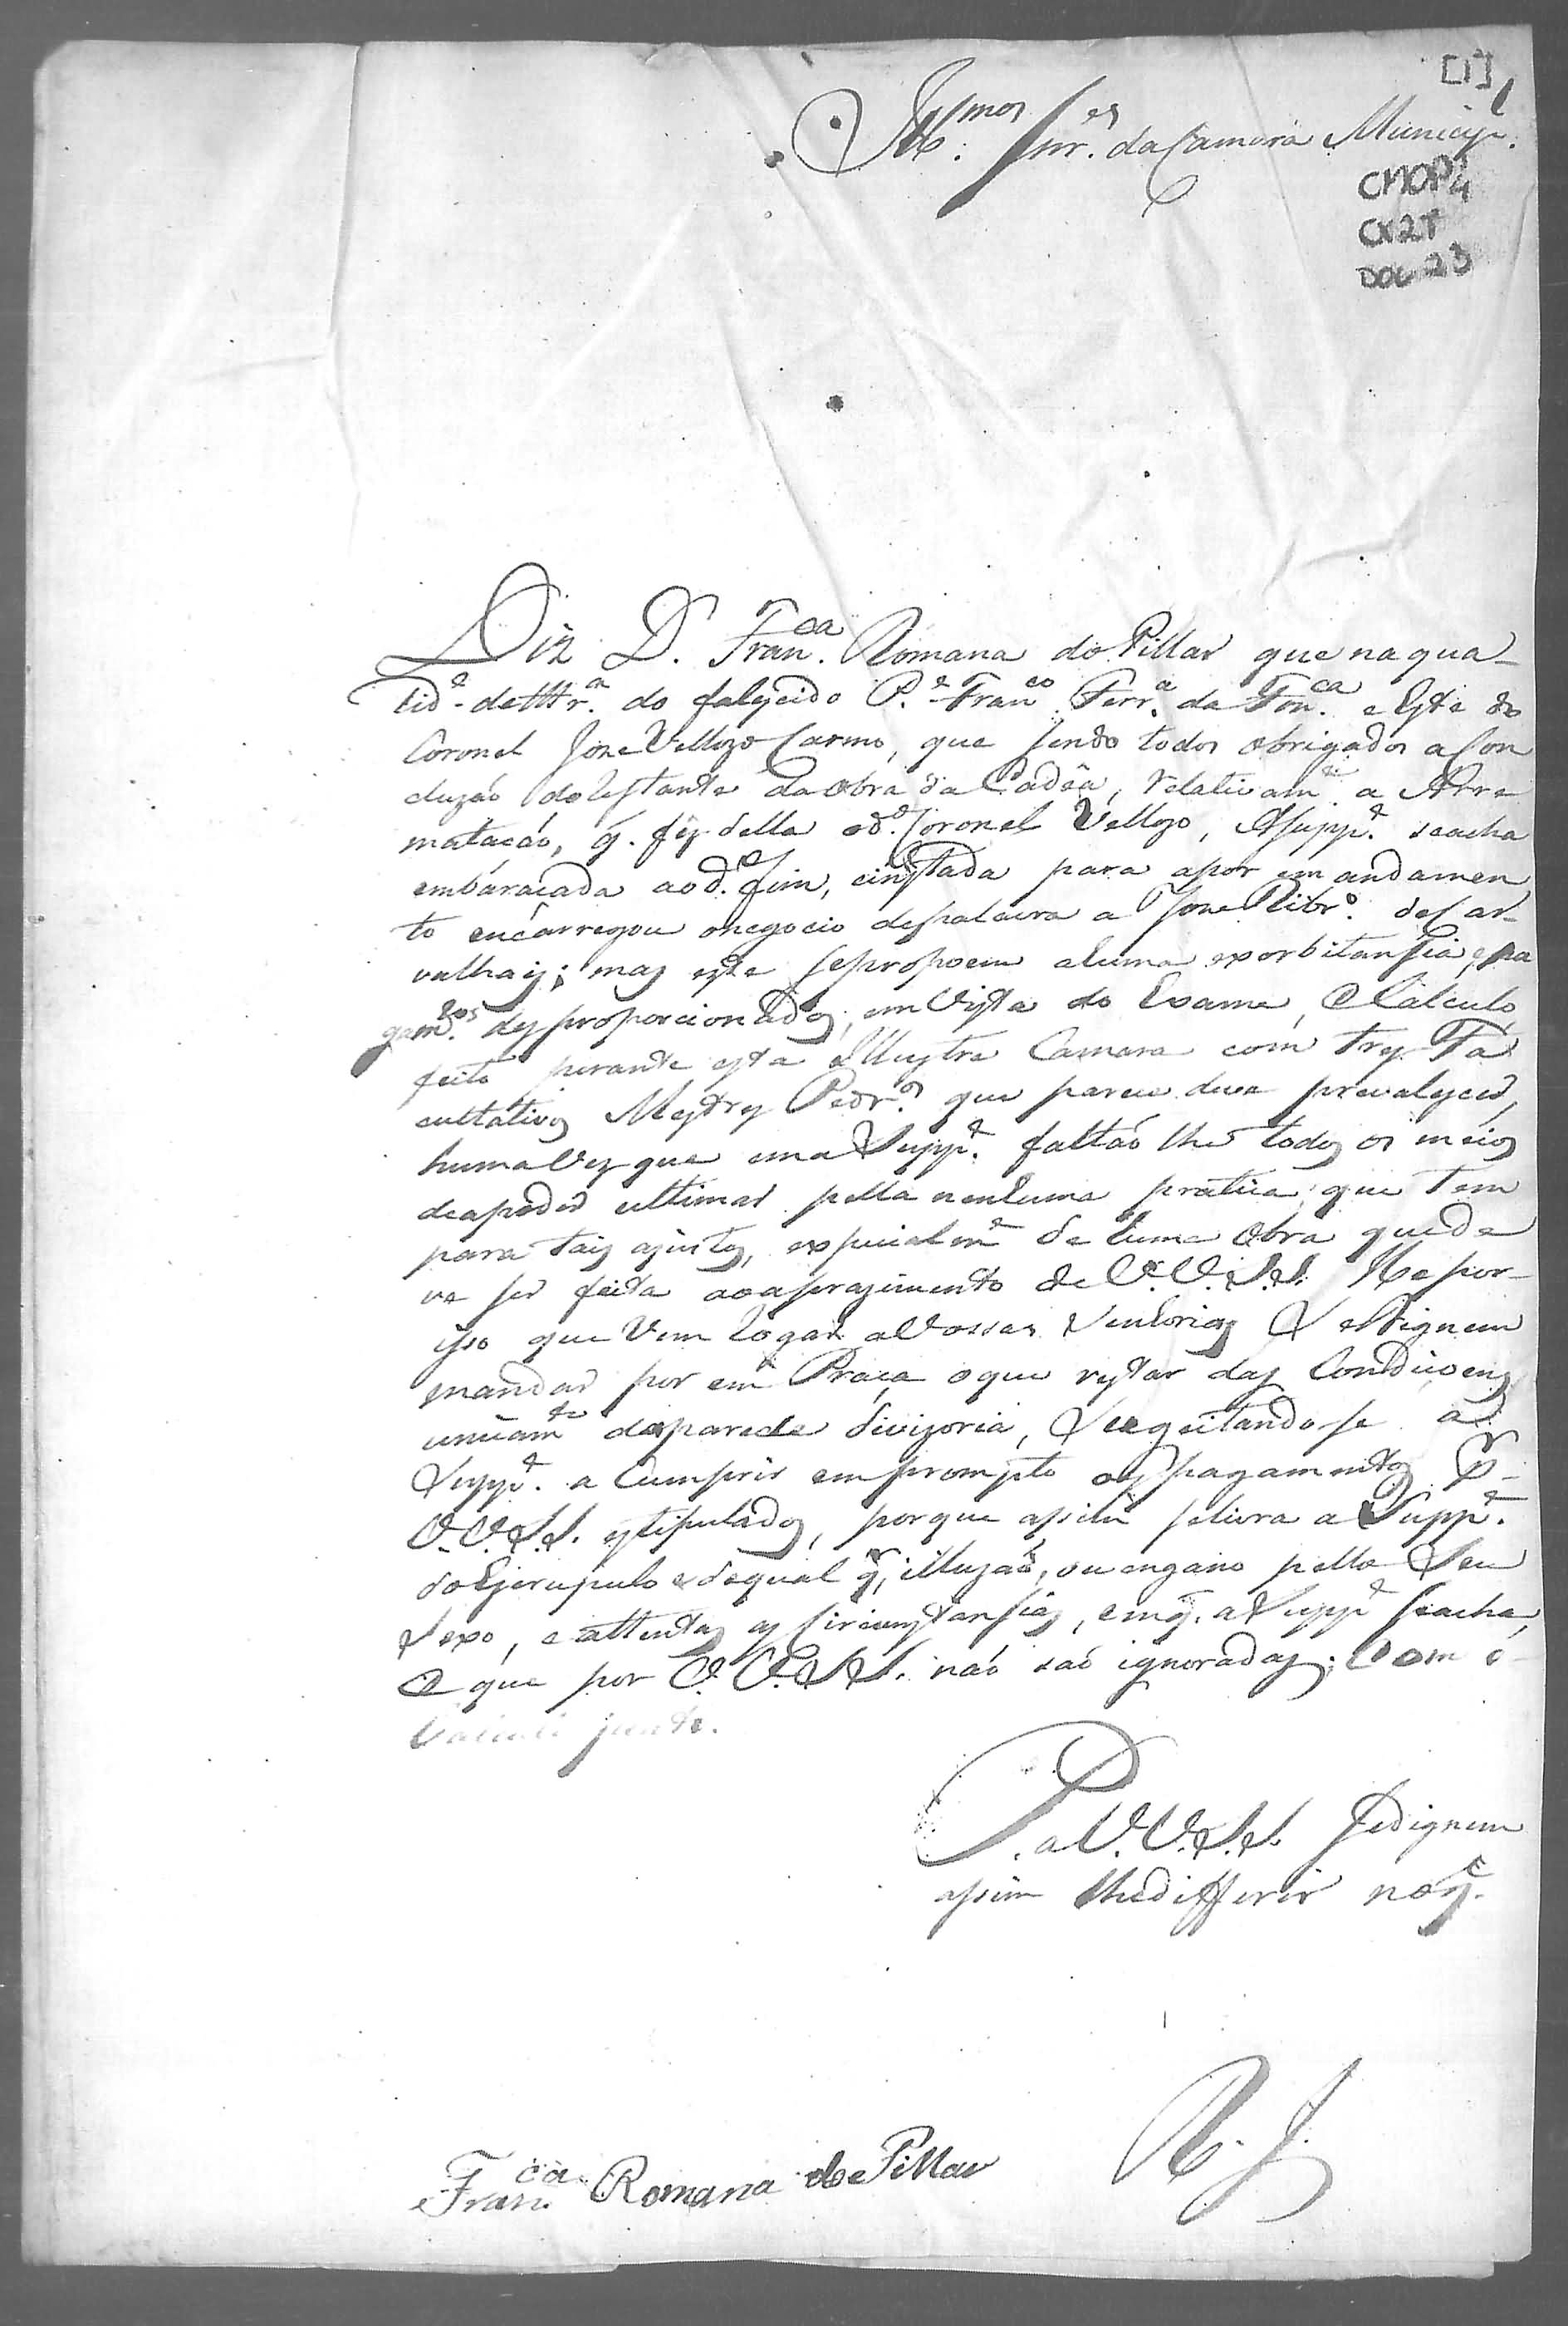 [1]
Ill.mos Snr.es da Camara Municip.l
CMOP
CX27
DOC 23
Diz D. Fran.ca Romana do Pillar que na qua-
lid.e de Ttr.a do falescido P.e Fran.co Ferr.a da Fon.ca e este do
Coronel Joze Vellozo Carmo, que sendo todos obrigados a Con
cluzaõ do restante da obra da Cadêa, relativam.te a Arre
mataçaõ, q. fez della o d.o Coronel Vellozo, A Supp.e se acha
embaraçada ao d.o fim, e instada para a por em andamen
to encarregou o negocio de palavra a Joze Ribr.o de Car-
valhais; mas este se propoem a huma exorbitansia, e pa
gam.tos desproporcionados, em vista do Exame, e Calculo
feito perante esta Illustre Camara com tres Fa
cultativos Mestres Pedr.os que parece deve prevalescer,
huma vez que em a Supp.e faltaõ lhe todos os meios
de a poder ultimar pella nenhuma pratica, que tem
para tais ajustes, especialm.e de huma Obra que de
ve ser feita ao aprazimento de V.V.S.S. He por-
isso que vem rogar a Vossas Senhorias Se Dignem
mandar por em Praça o que restar das Condiçoens
unicam.te da parede divizoria, Sugeitando se a
Supp.e a Cumprir em prompto os pagamentos p.r
V.V.S.S. estipulados, porque assim se livra a Supp.e
do Escrupulo e de qual q.r illuzaõ, ou engano pello Seu
Sexo, e attentas as Circunstansias, em q. a Supp.e se acha,
e que por V.V.S.S. naõ saõ ignoradas; Com o
Calculo junto.
P. a V.V.S.S. se dignem
assim lhe differir no q.
R. J.
Fran.ca Romana de Pillar